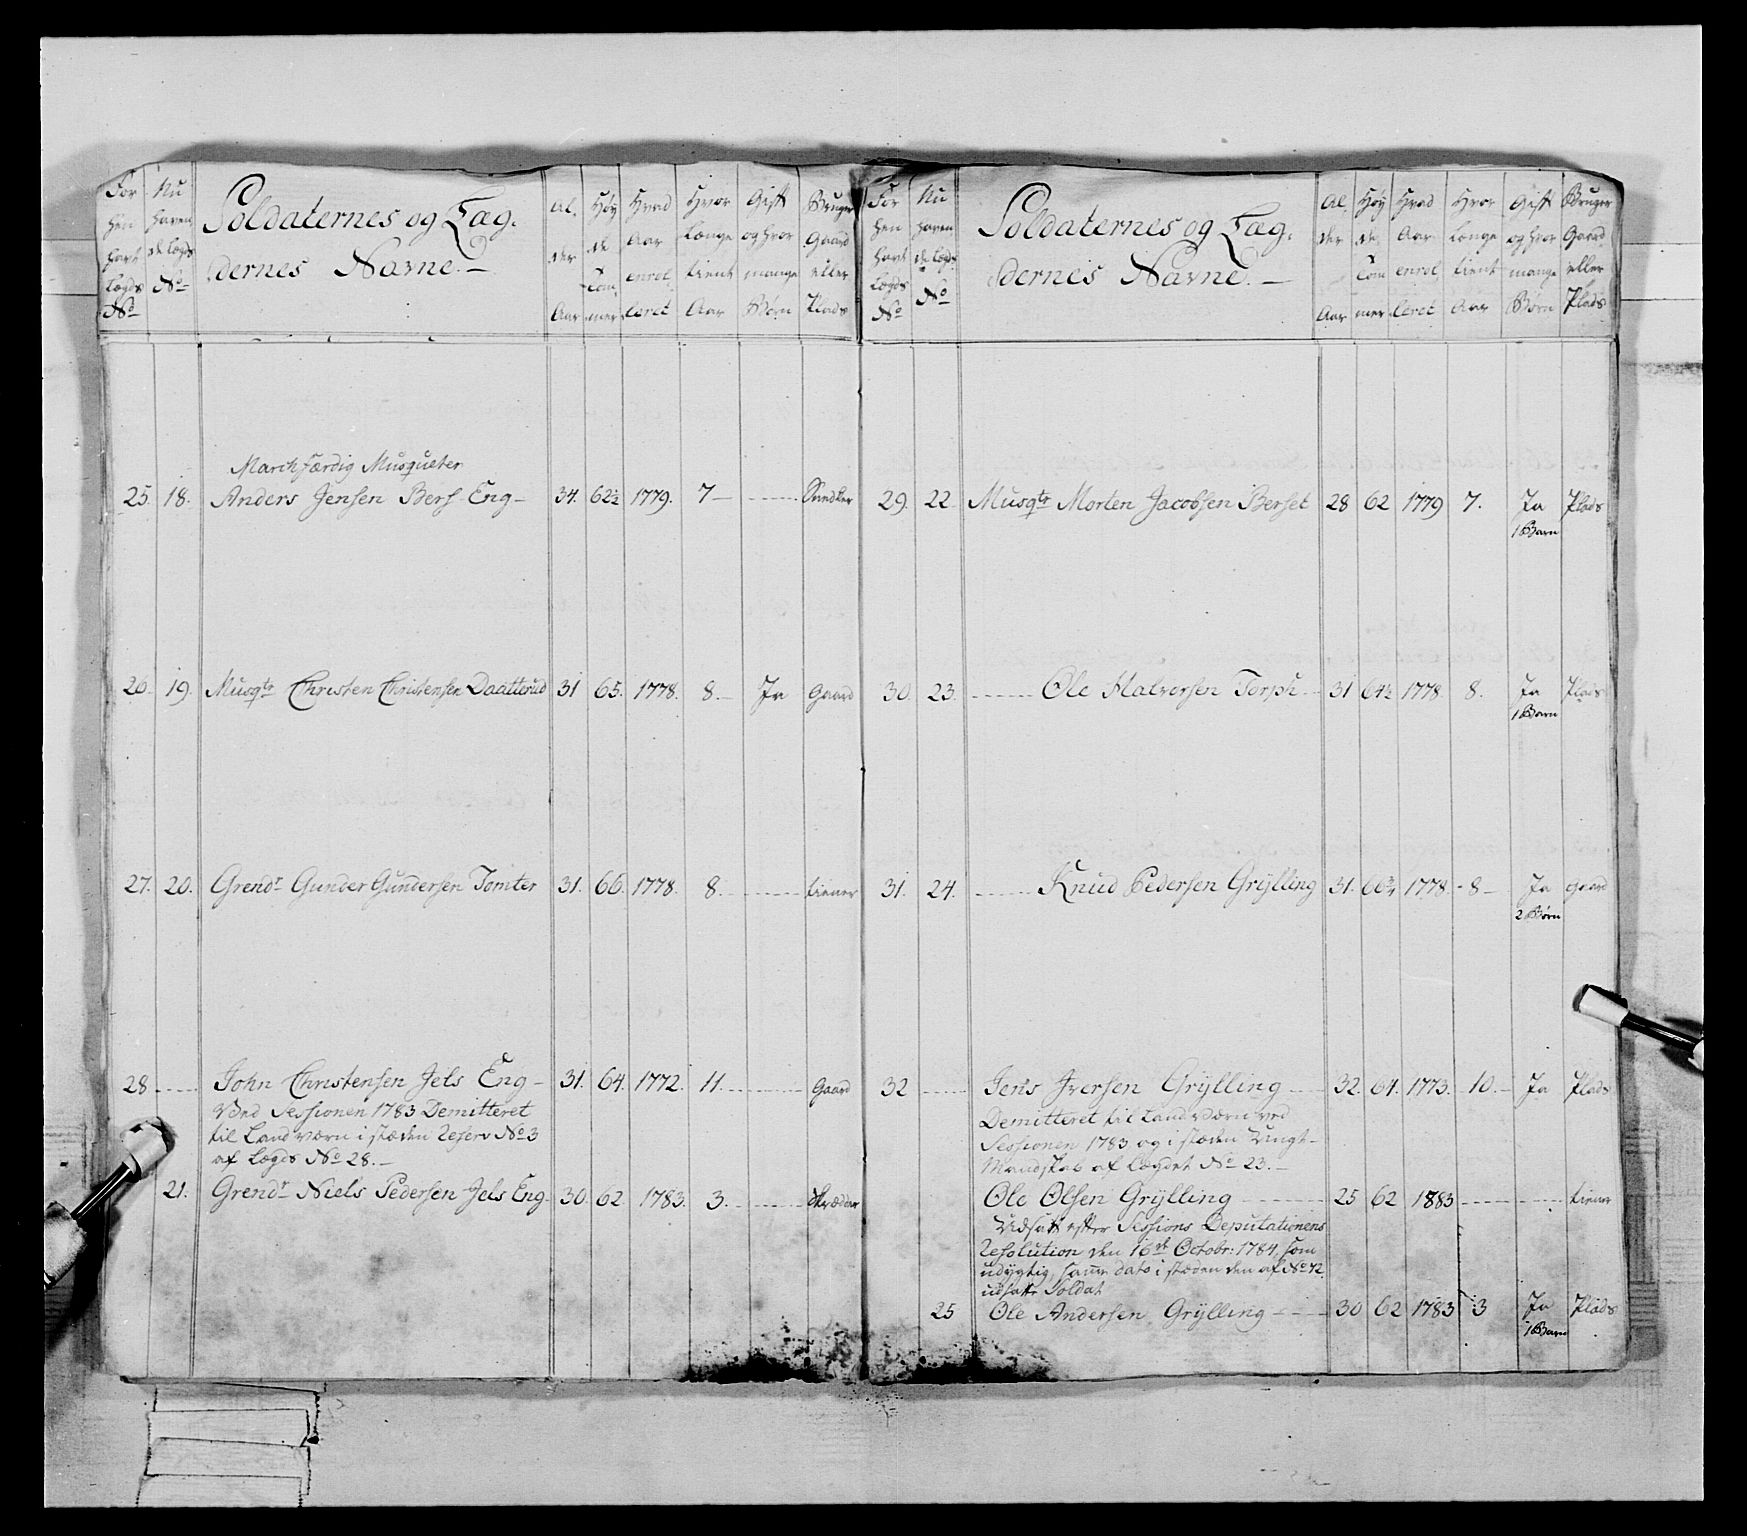 For hen havt Lægds No
Nu haven de Lægds No
Soldaternes og Læg-
dernes Navne. —
Al. der Aar
Høy de Tom mer
Hvad Aar enrol leret
Hvor Længe tient Aar
Gift og hvor mange Børn
Bruger Gaard eller Plads
Marchfærdig Musqueter
25. 18. Anders Jensen Bers Eng — 34. 62½ 1779. 7 — Snedker
26. 19. Musqtr Christen Christensen Daatterud 31 65. 1778. 8. — Ja Gaard
27. 20. Grendr Gunder Gundersen Tomter 31. 66. 1778. 8. tiener
28 John Christensen Jels Eng — 31. 64. 1772. 11. Gaard
Ved Sessionen 1783 Demitteret
til Land værn i stæden Reserv No 3
af Lægds No 28. —
21. Grendr Niels Pedersen Jels Eng. 30 62 1783. 3. Skrædder
For hen havt Lægds No
Nu haven de Lægds No
Soldaternes og Læg-
dernes Navne. —
Al der Aar
Høy de Tom mer
Hvad Aar enrol leret
Hvor Længe tient Aar
Gift og hvor mange Børn
Bruger Gaard eller Plads
29. 22. Musqtr Morten Jacobsen Berset 28 62 1779 7. Ja Plads
1 Barn
30 23. Ole Halvorsen Torph 31 64½ 1778 8. Ja Plads
1 Barn
31. 24. Knud Pedersen Grÿlling 31. 66¾ 1778. 8 — Ja Gaard
2 Børn
32 Jens Iversen Grÿlling 32. 64. 1773. 10. Ja Plads
Demitteret til Land værn ved
Sessionen 1783 og i stæden Ungt-
Mandskab af Lægdet No 23. —
Ole Olsen Grÿlling 25 62 1883 tiener
Udsatt efter Sessions Deputationens
Resolution den 16de Octobr: 1784. som
udygtig, samme dato i stæden den af No 72
udsatte Soldat
25 Ole Andersen Grÿlling 30 62 1783 3 Ja Plads
1 Barn